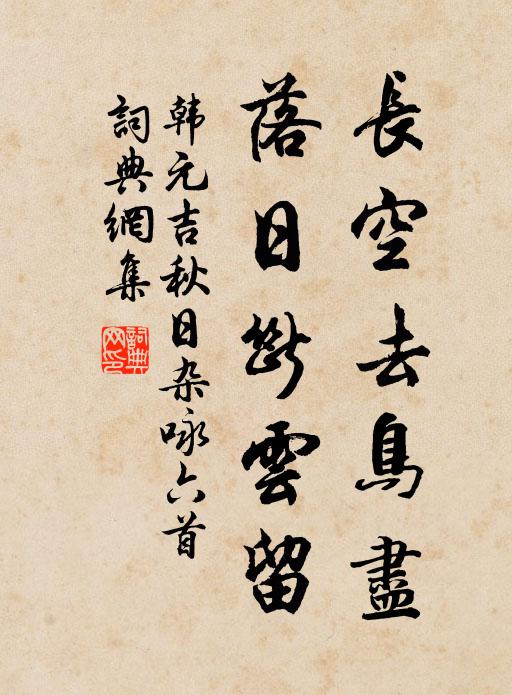 長空去鳥盡
落日斷雲留
韩元吉秋日杂咏六首
詞典網集
詞典網印